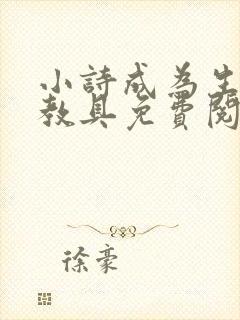 小詩成為生
教具免費閱
徐豪